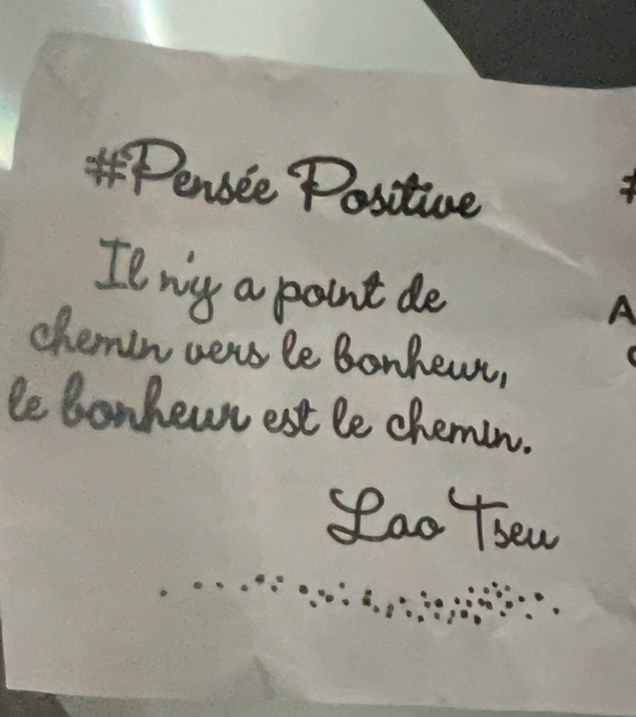 #Pensée Positive
Il n'y a point de
chemin vers le bonheur,
le bonheur est le chemin.
Lao Tseu